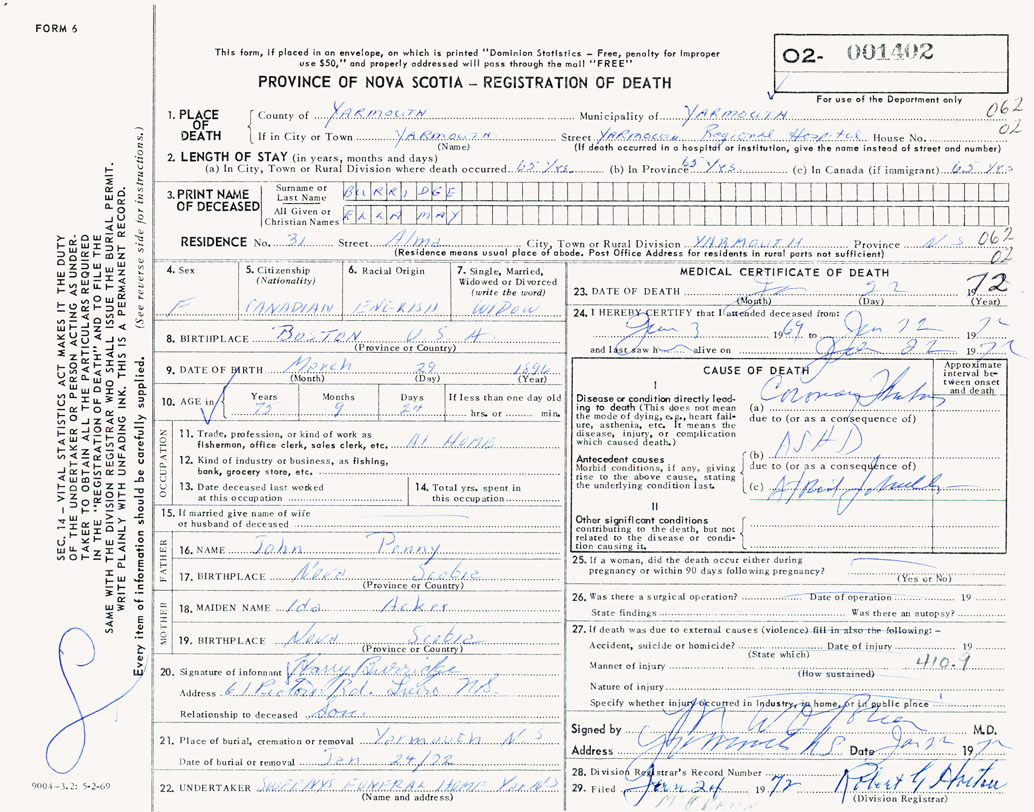 FORM 6
This form, if placed in an envelope, on which is printed "Dominion Statistics – Free, penalty for improper
use $50," and properly addressed will pass through the mail "FREE"
PROVINCE OF NOVA SCOTIA – REGISTRATION OF DEATH
02- 001402
For use of the Department only
062
02
1. PLACE OF DEATH
County of YARMOUTH Municipality of YARMOUTH
If in City or Town YARMOUTH Street YARMOUTH Regional Hospital House No.
(Name) (If death occurred in a hospital or institution, give the name instead of street and number)
2. LENGTH OF STAY (in years, months and days)
(a) In City, Town or Rural Division where death occurred 65 Yrs. (b) In Province 65 Yrs (c) In Canada (if immigrant) 65 Yrs
3. PRINT NAME OF DECEASED
Surname or Last Name BURRIDGE
All Given or Christian Names ELLA MAY
RESIDENCE No. 31 Street Alma City, Town or Rural Division YARMOUTH Province N.S
062
02
(Residence means usual place of abode. Post Office Address for residents in rural parts not sufficient)
4. Sex
F
5. Citizenship (Nationality)
CANADIAN
6. Racial Origin
ENGLISH
7. Single, Married, Widowed or Divorced (write the word)
WIDOW
8. BIRTHPLACE BOSTON U S A
(Province or Country)
9. DATE OF BIRTH March 29 1896
(Month) (Day) (Year)
10. AGE in
Years Months Days If less than one day old
75 9 24 hrs. or min.
OCCUPATION
11. Trade, profession, or kind of work as
fisherman, office clerk, sales clerk, etc. At HOME
12. Kind of industry or business, as fishing,
bank, grocery store, etc.
13. Date deceased last worked
at this occupation
14. Total yrs. spent in
this occupation
15. If married give name of wife
or husband of deceased
FATHER
16. NAME John Penny
17. BIRTHPLACE Nova Scotia
(Province or Country)
MOTHER
18. MAIDEN NAME Ida Acker
19. BIRTHPLACE Nova Scotia
(Province or Country)
20. Signature of informant Harry Burridge
Address 61 Pictou Rd. Truro N.S.
Relationship to deceased Son
21. Place of burial, cremation or removal Yarmouth N S
Date of burial or removal Jan 24/72
22. UNDERTAKER SWEENYS FUNERAL HOME Yar. N.S
(Name and address)
MEDICAL CERTIFICATE OF DEATH
23. DATE OF DEATH Jan 22 1972
(Month) (Day) (Year)
24. I HEREBY CERTIFY that I attended deceased from:
Jan 3 1969 to Jan 22 1972
and last saw h alive on Jan 22 1972
CAUSE OF DEATH
Approximate interval between onset and death
I
Disease or condition directly leading
to death (This does not mean
the mode of dying, e.g., heart failure,
asthenia, etc. It means the
disease, injury, or complication
which caused death.)
(a) Coronary
due to (or as a consequence of)
Antecedent causes
Morbid conditions, if any, giving
rise to the above cause, stating
the underlying condition last.
(b) ASHD
due to (or as a consequence of)
(c)
II
Other significant conditions
contributing to the death, but not
related to the disease or condition
causing it.
25. If a woman, did the death occur either during
pregnancy or within 90 days following pregnancy?
(Yes or No)
26. Was there a surgical operation? Date of operation 19
State findings Was there an autopsy?
27. If death was due to external causes (violence) fill in also the following: –
Accident, suicide or homicide? Date of injury 19
(State which)
410.9
Manner of injury
(How sustained)
Nature of injury
Specify whether injury occurred in Industry, in home, or in public place
Signed by W O'Brien M.D.
Address Yarmouth N.S. Date Jan 22 1972
28. Division Registrar's Record Number
29. Filed Jan 24 1972 Robert G Horton
(Division Registrar)
M OBRIEN
SEC. 14 – VITAL STATISTICS ACT MAKES IT THE DUTY
OF THE UNDERTAKER OR PERSON ACTING AS UNDERTAKER
TO OBTAIN ALL THE PARTICULARS REQUIRED
IN THE "REGISTRATION OF DEATH" AND TO FILE THE
SAME WITH THE DIVISION REGISTRAR WHO SHALL ISSUE THE BURIAL PERMIT.
WRITE PLAINLY WITH UNFADING INK. THIS IS A PERMANENT RECORD.
Every item of information should be carefully supplied. (See reverse side for instructions.)
9004-3.2: 5-2-69